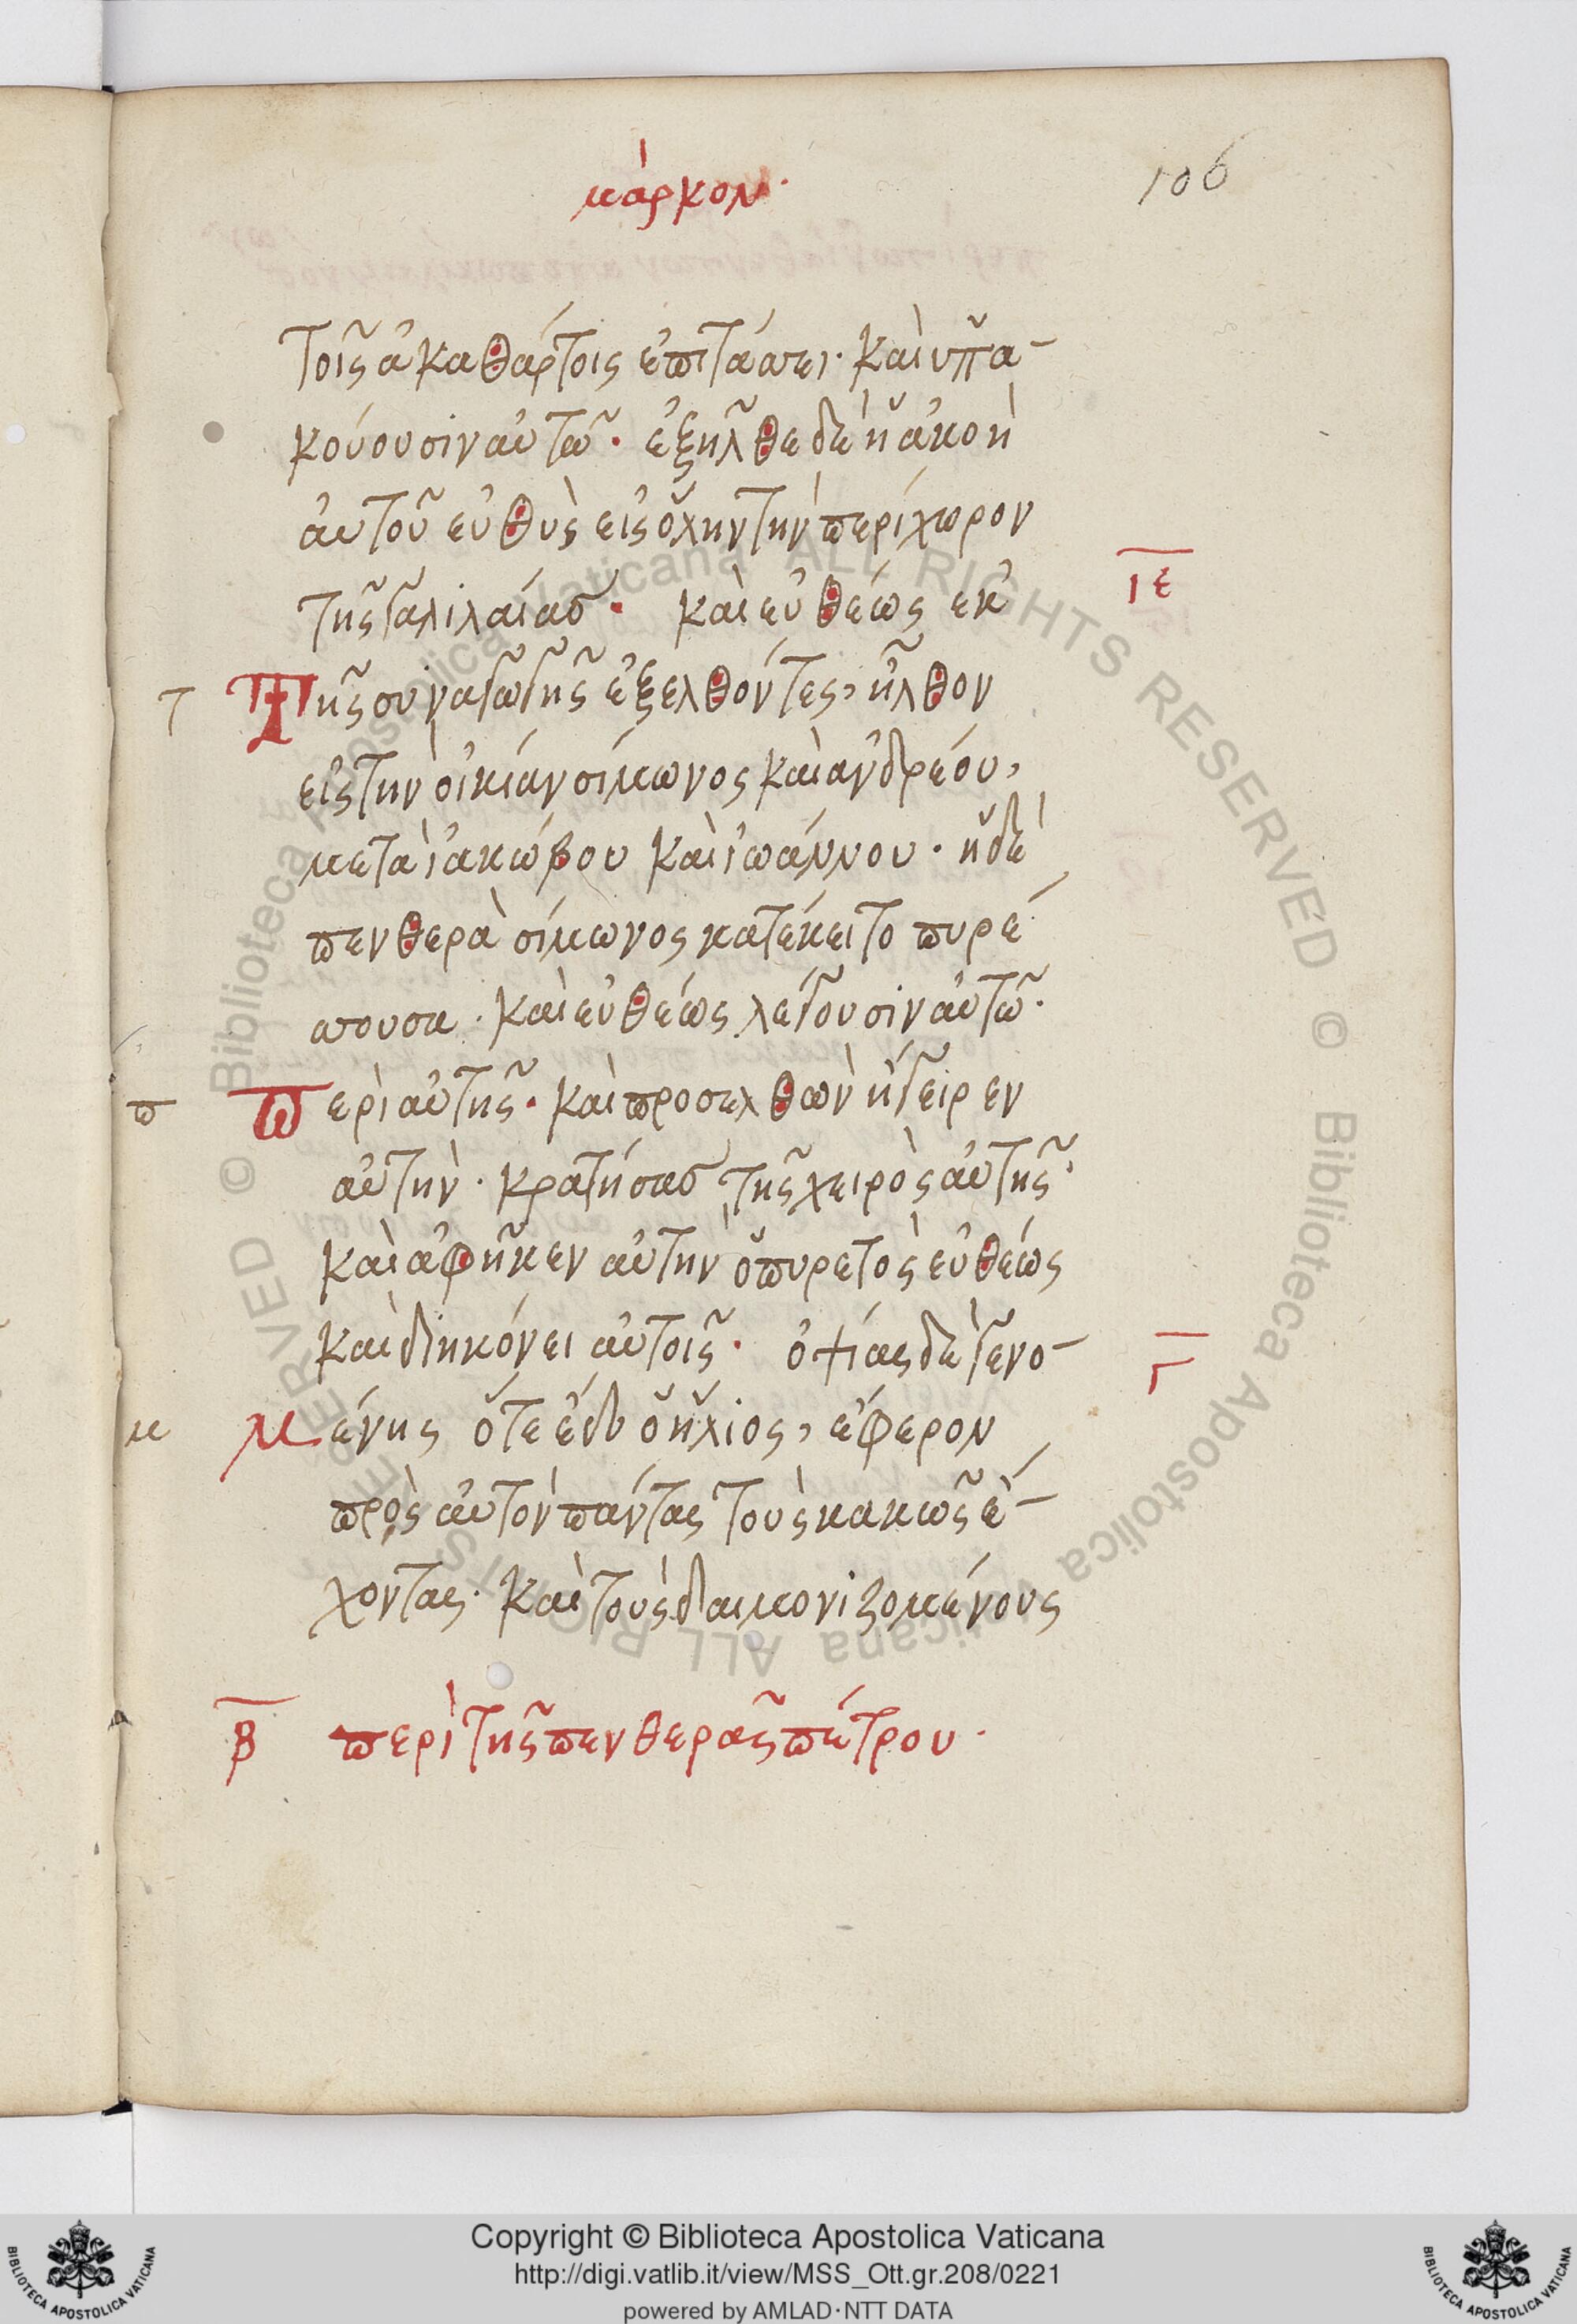 μάρκον·
106
τοῖς ἀκαθάρτοις ἐπιτάσσει· καὶ ὑπα-
κούουσιν αὐτῶ· ἐξῆλθε δὲ ἡ ἀκοὴ
αὐτοῦ εὐθὺς εἰς ὅλην τὴν περίχωρον
τῆς γαλιλαίασ· καὶ εὐθέως ἐκ
ιε
τ
τῆς συναγωγῆς ἐξελθόντες, ἦλθον
εἰς τὴν οἰκίαν σίμωνος καὶ ἀνδρέου,
μετὰ ἰακώβου καὶ ἰωάννου· ἡ δὲ
πενθερὰ σίμωνος κατέκειτο πυρέ
σσουσα· καὶ εὐθέως λέγουσιν αὐτῶ·
π
περὶ αὐτῆς· καὶ προσελθὼν ἤγειρεν
αὐτὴν· κρατήσασ τῆς χειρὸς αὐτῆς·
καὶ ἀφῆκεν αὐτὴν ὁ πυρετὸς εὐθέως
καὶ διηκόνει αὐτοῖς· ὀψίας δὲ γενο-
Γ
μ
μένης ὅτε ἔδυ ὁ ἥλιος, ἔφερον
πρὸς αὐτὸν πάντας τοὺς κακῶς ἔ-
χοντας· καὶ τοὺς δαιμονιζομένους
β περὶ τῆς πενθερᾶς πέτρου·
© Biblioteca Apostolica Vaticana ALL RIGHTS RESERVED © Biblioteca Apostolica Vaticana ALL RIGHTS RESERVED
Copyright © Biblioteca Apostolica Vaticana
http://digi.vatlib.it/view/MSS_Ott.gr.208/0221
powered by AMLAD·NTT DATA
BIBLIOTECA APOSTOLICA VATICANA
BIBLIOTECA APOSTOLICA VATICANA